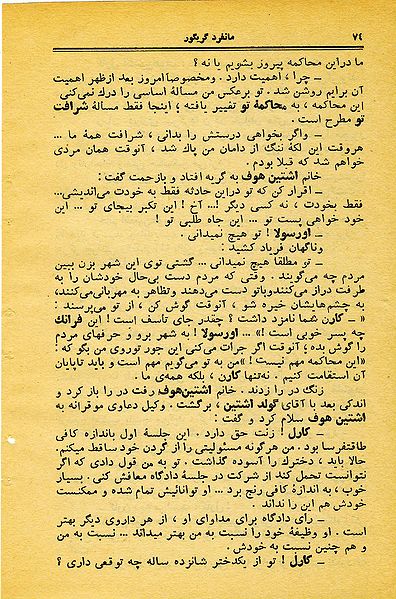 ۷۴ مانفرد گریگور
ما دراین محاکمه پیروز بشویم یا نه ؟
ــ چرا ، اهمیت دارد . ومخصوصاامروز بعد ازظهر اهمیت
آن برایم روشن شد . تو برعکس من مسالهٔ اساسی را درك نمی‌کنی
این محاکمه ، به محاکمهٔ تو تغییر یافته ؛ اینجا فقط مسالهٔ شرافت
تو مطرح است .
ــ واگر بخواهی درستش را بدانی ، شرافت همهٔ ما ...
هروقت این لکهٔ ننگ از دامان من پاك شد ، آنوقت همان مردی
خواهم شد که قبلا بودم .
خانم اشتین هوف به گریه افتاد و بازحمت گفت :
ــ اقرار کن که تو دراین حادثه فقط به خودت می‌اندیشی...
فقط بخودت ، نه کسی دیگر !... آخ ! این تکبر بیجای تو ... این
خود خواهی پست تو ... این جاه طلبی تو !
ــ اورسولا ! تو هیچ نمیدانی .
وناگهان فریاد کشید :
ــ تو مطلقا هیچ نمیدانی ... گشتی توی این شهر بزن ببین
مردم چه می‌گویند . وقتی که مردم دست بی‌حال خودشان را به
طرفت درازمی‌کنندوباتو دست می‌دهند وتظاهر به مهربانی‌می‌کنند،
به چشم‌هایشان خیره شو ، آنوقت گوش کن ، از تو می‌پرسند :
« ــ کارن شما نامزد داشت ؟ چقدر جای تاسف است ! این فرانك
چه پسر خوبی است !» ... اورسولا ! به شهر برو و حرفهای مردم
را گوش بده ؛ آنوقت اگر جرات می‌کنی این جور توروی من بگو که :
«این محاکمه مهم نیست !» من به تو می‌گویم مهم است و باید تاپایان
آن استقامت کنیم . نه‌تنها کارن ، بلکه همه‌ی ما .
زنگ در را زدند . خانم اشتین‌هوف رفت در را باز کرد و
اندکی بعد با آقای گولد اشتین ، برگشت . وکیل دعاوی موقرانه به
اشتین هوف سلام کرد و گفت :
ــ کارل ! زنت حق دارد . این جلسهٔ اول باندازه کافی
طاقتفرسا بود . من هرگونه مسئولیتی را از گردن خود ساقط میکنم.
حالا باید ، دخترك را آسوده گذاشت . تو به من قول دادی که اگر
نتوانست تحمل کند از شرکت در جلسهٔ دادگاه معافش کنی . بسیار
خوب ، به اندازهٔ کافی رنج برد ... او توانائیش تمام شده و ممکنست
خودش هم این را نداند .
ــ رای دادگاه برای مداوای او ، از هر داروی دیگر بهتر
است . او وظیفهٔ خود را نسبت به من بهتر میداند ... نسبت به من
و هم چنین نسبت به خودش .
ــ کارل ! تو از یكدختر شانزده ساله چه توقعی داری ؟